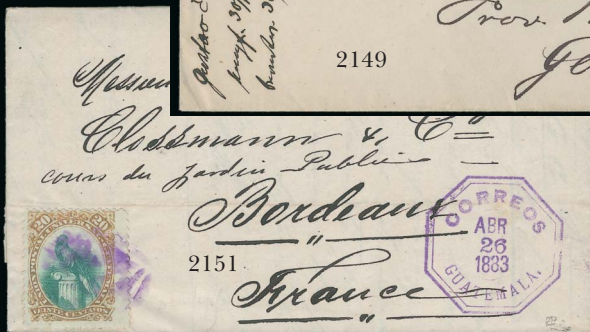 Prov.
2149
Messieu
Clossmann & Cie
cours du Jardin Public
Bordeaux
France
2151
20 20
CORREOS
ABR
26
1883
GUATEMALA.